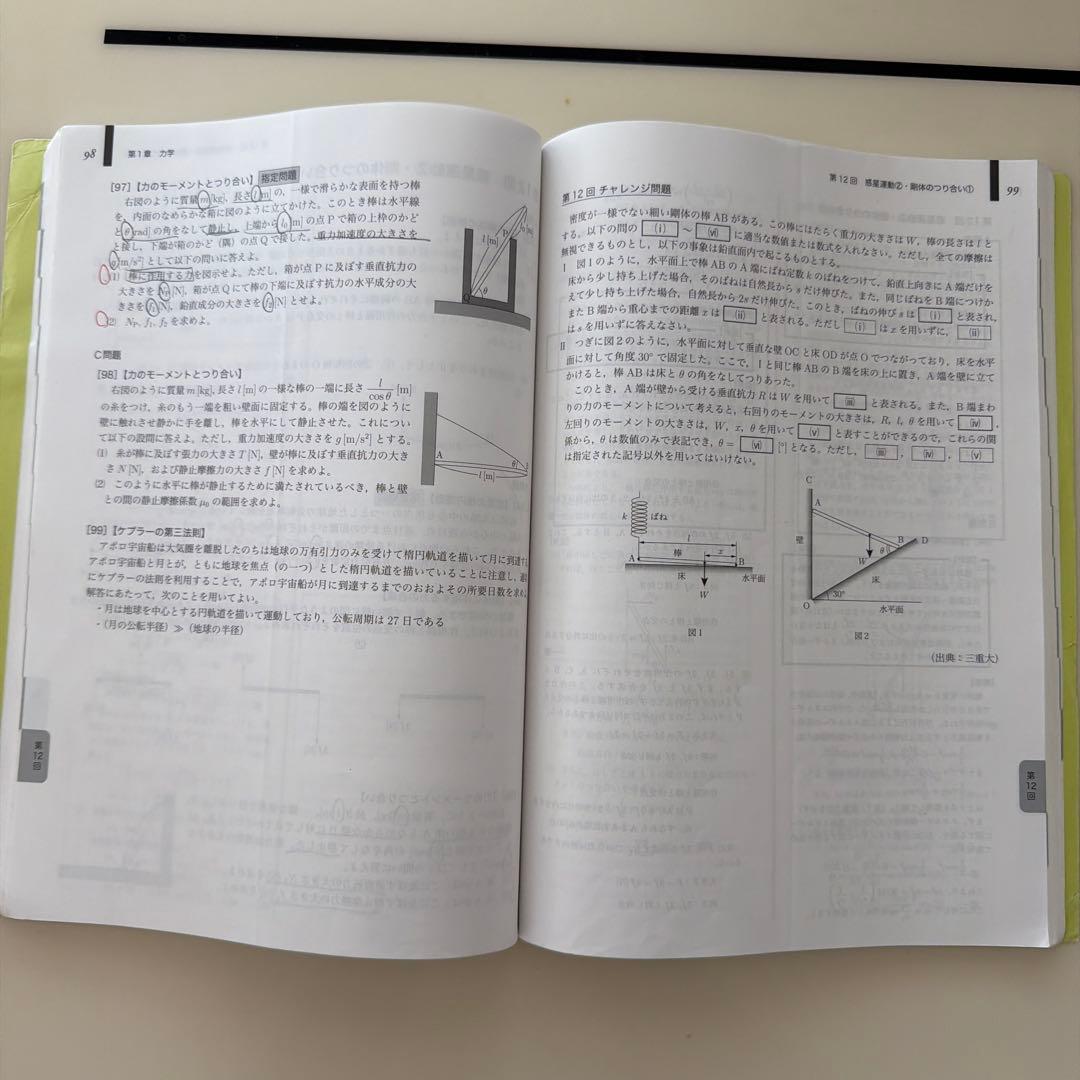 98
第1章 力学
[97]【力のモーメントとつり合い】 指定問題
右図のように質量m[kg], 長さl[m]の, 一様で滑らかな表面を持つ棒
を, 内面のなめらかな箱に図のように立てかけた。このとき棒は水平線
とθ[rad]の角をなして静止し, 上端からl₀[m]の点Pで箱の上枠のかど
と接し, 下端が箱のかど(隅)の点Qで接した。重力加速度の大きさを
g[m/s²]として以下の問いに答えよ。
(1) 棒に作用する力を図示せよ。ただし, 箱が点Pに及ぼす垂直抗力の
大きさをN_P[N], 箱が点Qにて棒の下端に及ぼす抗力の水平成分の大
きさをf₁[N], 鉛直成分の大きさをf₂[N]とせよ。
(2) N_P, f₁, f₂を求めよ。
P
l₀[m]
l[m]
Q
θ
C問題
[98]【力のモーメントとつり合い】
右図のように質量m[kg], 長さl[m]の一様な棒の一端に長さ l/cosθ [m]
の糸をつけ, 糸のもう一端を粗い壁面に固定する。棒の端を図のように
壁に触れさせ静かに手を離し, 棒を水平にして静止させた。これについ
て以下の設問に答えよ。ただし, 重力加速度の大きさをg[m/s²]とする。
(1) 糸が棒に及ぼす張力の大きさT[N], 壁が棒に及ぼす垂直抗力の大き
さN[N], および静止摩擦力の大きさf[N]を求めよ。
(2) このように水平に棒が静止するために満たされているべき, 棒と壁
との間の静止摩擦係数μ₀の範囲を求めよ。
A
θ
l[m]
[99]【ケプラーの第三法則】
アポロ宇宙船は大気圏を離脱したのちは地球の万有引力のみを受けて楕円軌道を描いて月に到達す
アポロ宇宙船と月とが, ともに地球を焦点(の一つ)とした楕円軌道を描いていることに注意し,
にケプラーの法則を利用することで, アポロ宇宙船が月に到達するまでのおおよその所要日数を求め
解答にあたって, 次のことを用いてよい。
・月は地球を中心とする円軌道を描いて運動しており, 公転周期は27日である
・(月の公転半径)≫(地球の半径)
第12回
第12回 惑星運動②・剛体のつり合い①
99
第12回 チャレンジ問題
密度が一様でない細い剛体の棒ABがある。この棒にはたらく重力の大きさはW, 棒の長さはlと
する。以下の問の (i) ~ (vi) に適当な数値または数式を入れなさい。ただし, 全ての摩擦は
無視できるものとし, 以下の事象は鉛直面内で起こるものとする。
I 図1のように, 水平面上で棒ABのA端にばね定数kのばねをつけて, 鉛直上向きにA端だけを
床から少し持ち上げた場合, そのばねは自然長からsだけ伸びた。また, 同じばねをB端につけか
えて少し持ち上げた場合, 自然長から2sだけ伸びた。このとき, ばねの伸びsは (i) と表され,
またB端から重心までの距離xは (ii) と表される。ただし (i) はxを用いずに, (ii)
はsを用いずに答えなさい。
II つぎに図2のように, 水平面に対して垂直な壁OCと床ODが点Oでつながっており, 床を水平
面に対して角度30°で固定した。ここで, Iと同じ棒ABのB端を床の上に置き, A端を壁に立て
かけると, 棒ABは床とθの角をなしてつりあった。
このとき, A端が壁から受ける垂直抗力RはWを用いて (iii) と表される。また, B端まわ
りの力のモーメントについて考えると, 右回りのモーメントの大きさは, R, l, θを用いて (iv) ,
左回りのモーメントの大きさは, W, x, θを用いて (v) と表すことができるので, これらの関
係から, θは数値のみで表記でき, θ= (vi) [°]となる。ただし, (iii) , (iv) , (v)
は指定された記号以外を用いてはいけない。
k ばね
l
棒
x
A
B
床
水平面
W
図1
C
A
壁
B
D
θ
W
床
30°
O
水平面
図2
(出典:三重大)
第12回